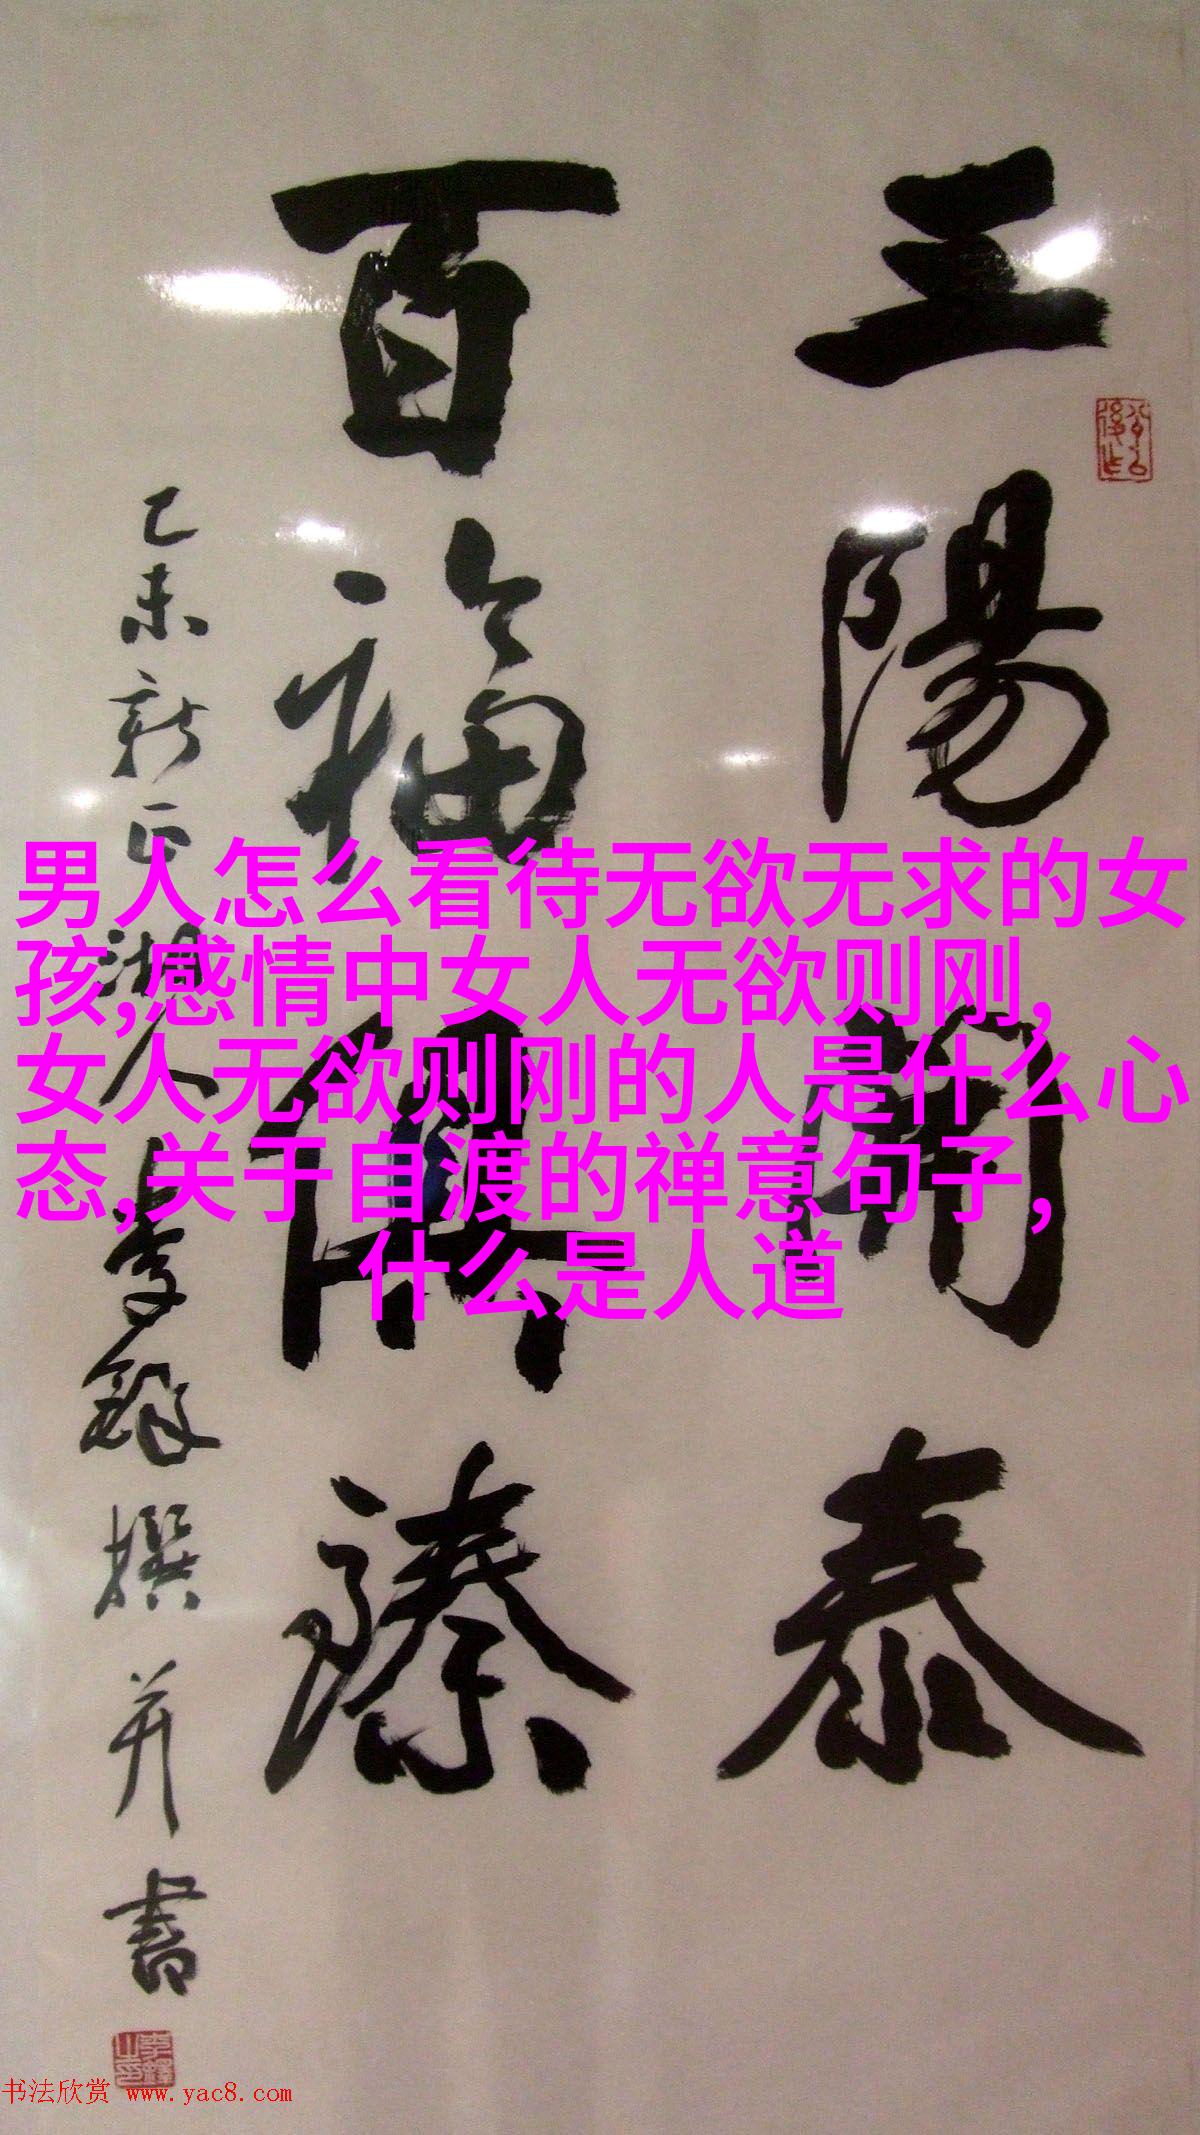 三陽開泰
百福俱臻
乙未新正湖人李鐸撰并書
男人怎么看待无欲无求的女
孩,感情中女人无欲则刚,
女人无欲则刚的人是什么心
态,关于自渡的禅意句子,
什么是人道
书法欣赏 www.yac8.com